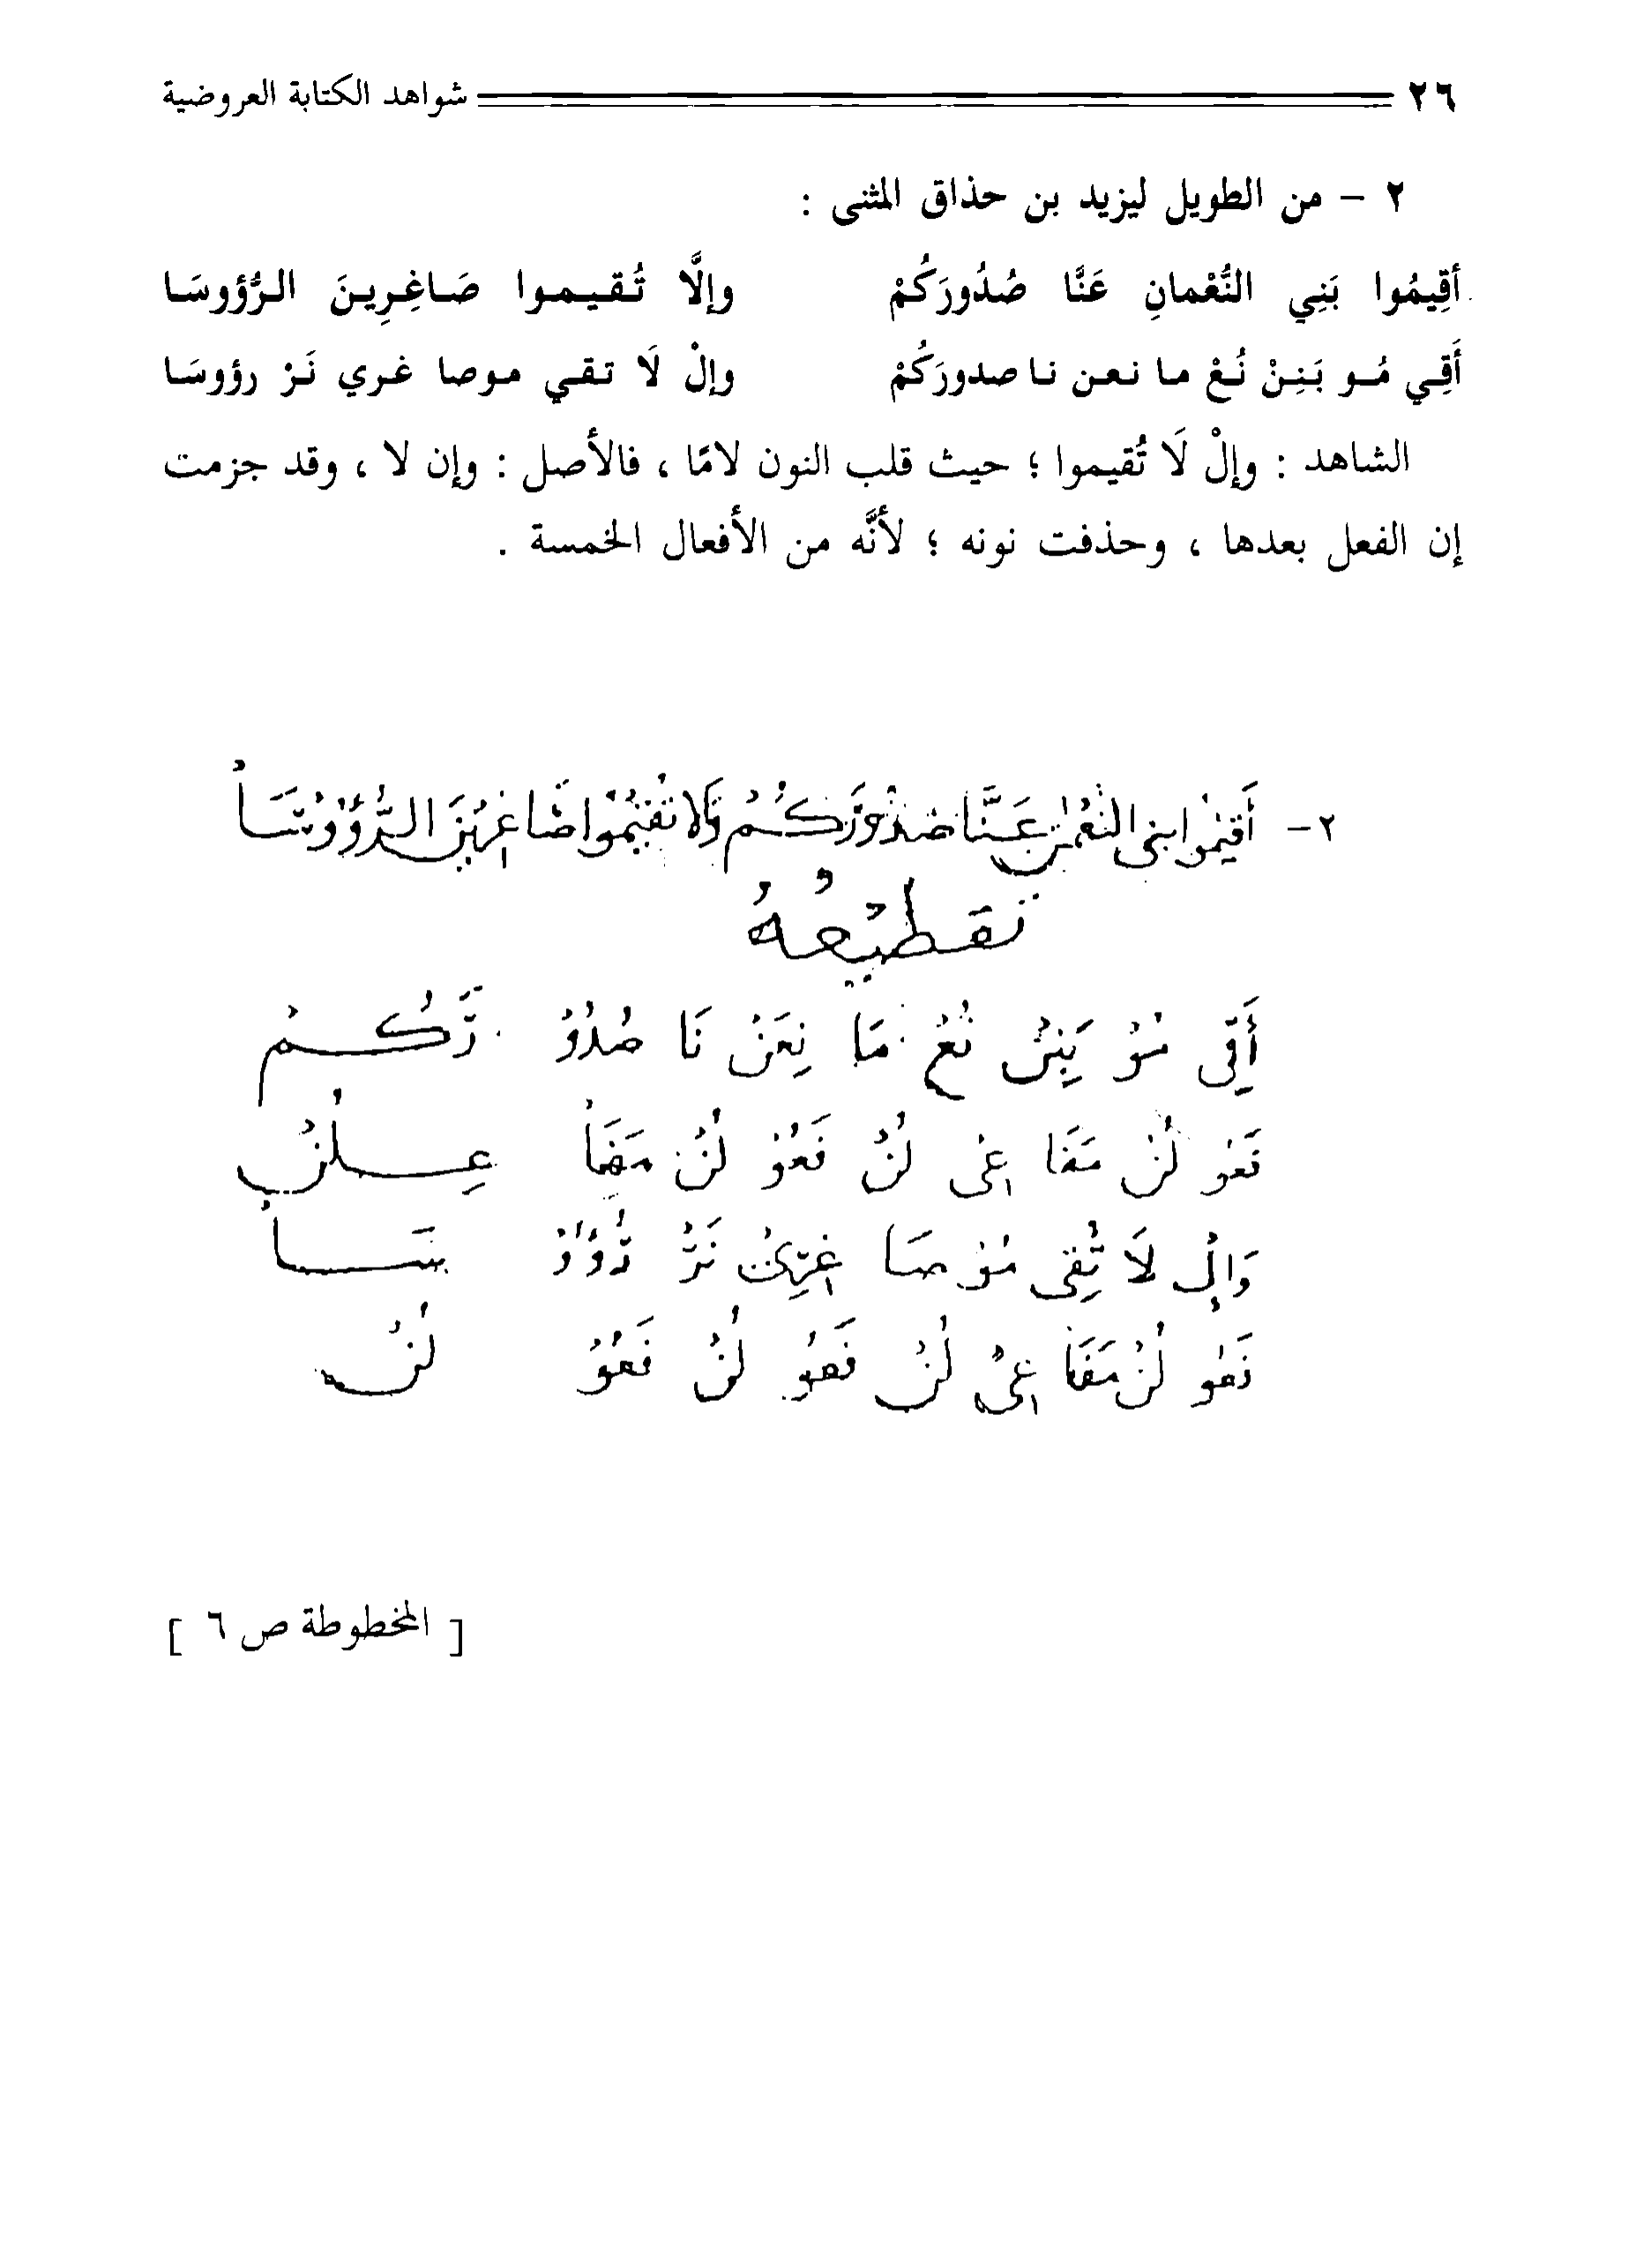 ٢٦ شواهد الكتابة العروضية
٢ - من الطويل ليزيد بن حذاق المثنى :
أقِيمُوا بَنِي النُّعْمانِ عَنَّا صُدُورَكُمْ وإلَّا تُقيموا صَاغِرِينَ الرُّؤوسَا
أَقِي مُو بَنِنْ نُعْ ما نعن نا صدورَكُمْ وإلْ لَا تقي موصا غري نَرْ رؤوسَا
الشاهد : وإلْ لَا تُقيموا ؛ حيث قلب النون لامًا ، فالأصل : وإن لا ، وقد جزمت
إن الفعل بعدها ، وحذفت نونه ؛ لأنَّه من الأفعال الخمسة .
٢- أَقيمُوا بنى النُّعْمٰنِ عَنَّا صُدُورَكُمْ وَإلا تُقيمُوا صَاغِرِينَ الرُّؤُوسَا
تقطيعُهُ
أَقِى مُوْ بَنِنْ نُعْ مَا نِعَنْ نَا صُدُوْ رَكُمْ
فَعُو لُنْ مَفَا عِى لُنْ فَعُوْ لُنْ مَفَا عِلُنْ
وَإِلْ لَا تُقِى مُوْ صَا غِرِىْ نَرْ رُؤُوْ سَا
فَعُو لُنْ مَفَا عِىْ لُنْ فَعُوْ لُنْ فَعُوْ لُنْ
[ المخطوطة ص ٦ ]